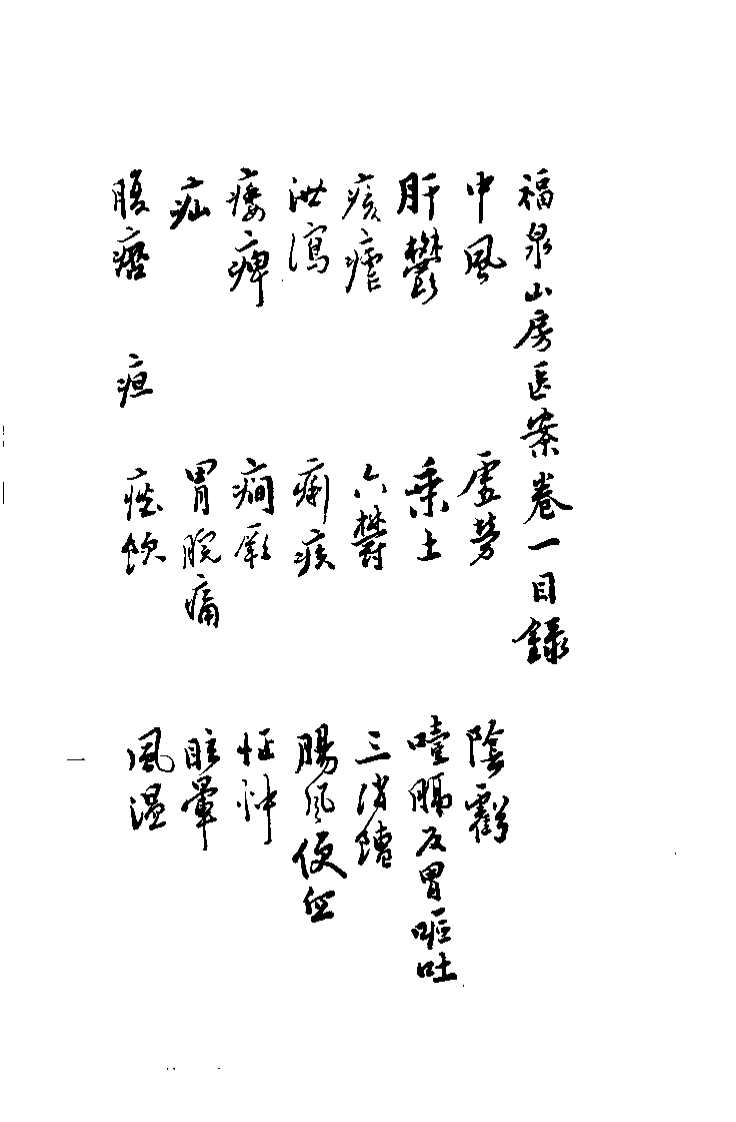 福泉山房医案卷一目錄
中風 虛勞 陰虧
肝鬱 乘土 噎膈反胃嘔吐
痎瘧 六鬱 三消 嘈
泄瀉 痢疾 腸風便血
痿痺 癇厥 怔忡
疝 胃脘痛 眩暈
腹痞 疸 痰飲 風溫
一